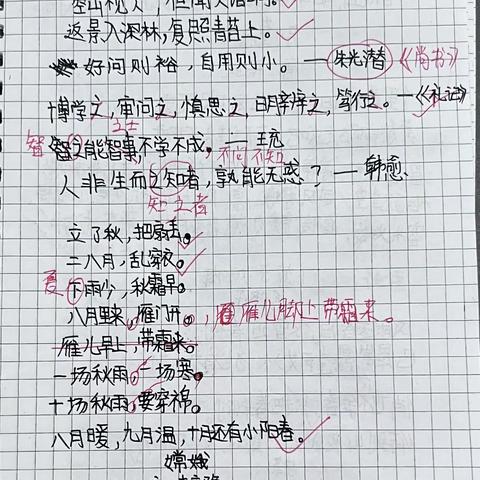 空山不见人，但闻人语响。
返景入深林，复照青苔上。
好问则裕，自用则小。——朱光潜《尚书》
博学之，审问之，慎思之，明辨之，笃行之。——《礼记》
之士
智 智之能智事，不学不成，——王充
不问不知
人非生而之知者，孰能无惑？——韩愈
知之者
立了秋，把扇丢。
二八月，乱穿衣。
夏 下雨少，秋霜早。
八月里来，雁门开。，雁儿脚上带霜来。
雁儿早上，带霜来。
一场秋雨，一场寒。
十场秋雨，要穿棉。
八月暖，九月温，十月还有小阳春。
嫦娥